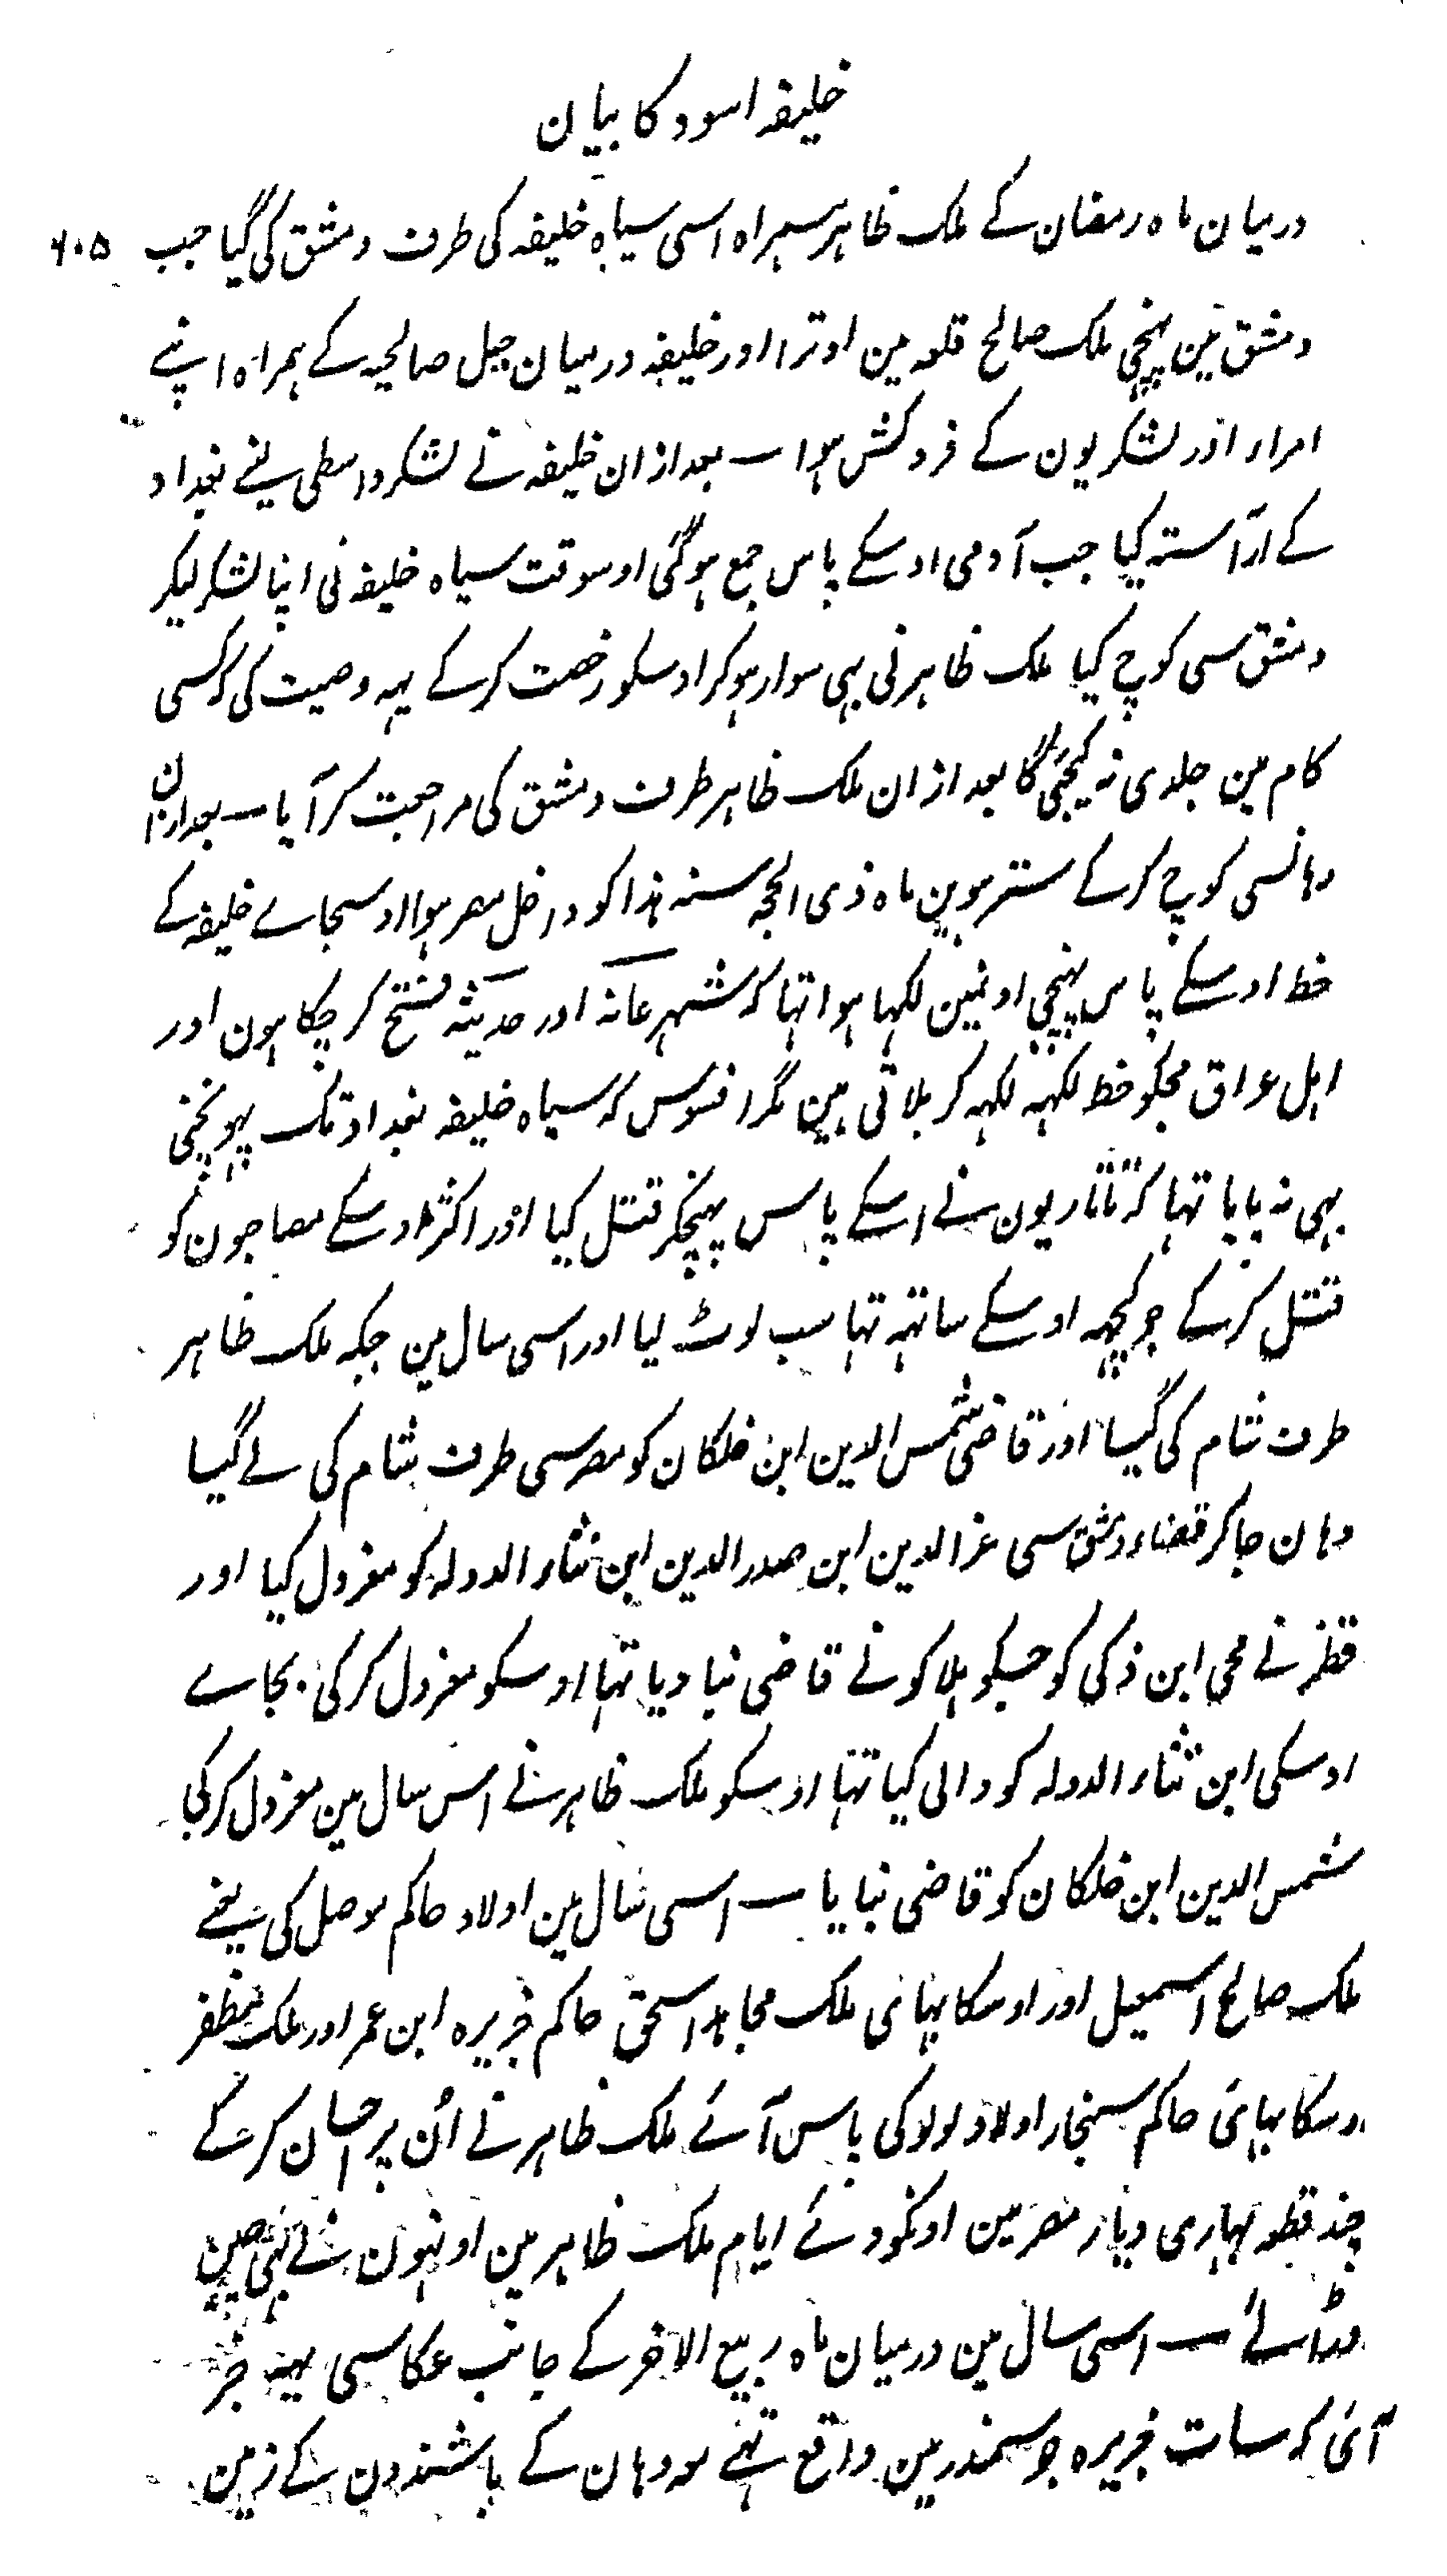 خلیفہ اسود کا بیان
درمیان ماہ رمضان کے ملک ظاہر ہمراہ اسی سیاہ خلیفہ کی طرف دمشق کی گیا جب ۶۰۵
دمشق مین پہنچی ملک صالح قلعہ مین اوترا اور خلیفہ درمیان جبل صالحیہ کے ہمراہ اپنے
امراء اور لشکریون کے فروکش ہوا ــ بعد ازان خلیفہ نے لشکر واسطی لینے بغداد
کے آراستہ کیا جب آدمی اوسکے پاس جمع ہوگئی اوسوقت سیاہ خلیفہ نی اپنا لشکر لیکر
دمشق سی کوچ کیا ملک ظاہر نی بہی سوار ہوکر اوسکو رخصت کرکے یہہ وصیت کی کہ کسی
کام مین جلدی نہ کیجیٔگا بعد ازان ملک ظاہر طرف دمشق کی مراجعت کر آیا ــ بعد ازان
وہانسی کوچ کرکے سترہوین ماہ ذی الحجہ سنہ ہذا کو داخل مصر ہوا اوسجاے خلیفہ کے
خط اوسکے پاس پہنچی اونمین لکہا ہوا تہا کہ شہر عانہ اور حدیثہ فتح کر چکا ہون اور
اہل عراق مجکو خط لکہہ لکہہ کر بلاتی ہین مگر افسوس کہ سیاہ خلیفہ بغداد تک پہونچنی
بہی نہ پایا تہا کہ تاتاریون نے اسکے پاس پہنچکر قتل کیا اور اکثر اوسکے مصاحبون کو
قتل کرکے جو کچہہ اوسکے ساتہہ تہا سب لوٹ لیا اور اسی سال مین جبکہ ملک ظاہر
طرف شام کی گیا اور قاضی شمس الدین ابن خلکان کو مصر سی طرف شام کی لے گیا
وہان جاکر قضاء دمشق سی عز الدین ابن صدر الدین ابن ثناء الدولہ کو معزول کیا اور
قطز نے محی ابن ذکی کو جسکو ہلاکو نے قاضی بنا دیا تہا اوسکو معزول کرکی بجاے
اوسکی ابن ثناء الدولہ کو والی کیا تہا اوسکو ملک ظاہر نے اس سال مین معزول کرکی
شمس الدین ابن خلکان کو قاضی بنایا ــ اسی سال مین اولاد حاکم موصل کی یعنے
ملک صالح اسمعیل اور اوسکا بہائی ملک مجاہد اسحق حاکم جزیرہ ابن عمر اور ملک مظفر
اوسکا بہائی حاکم سنجار اولاد لولو کی پاس آئے ملک ظاہر نے اُن پر احسان کرکے
چند قطعہ بہاری دیار مصر مین اونکو دئے ایام ملک ظاہر مین اونہون نے
اسی سال مین درمیان ماہ ربیع الاخر کے جانب عکا سی یہہ خبر
آئی کہ سات جزیرہ جو سمندر مین واقع تہے مہ وہان کے باشندون کے زمین